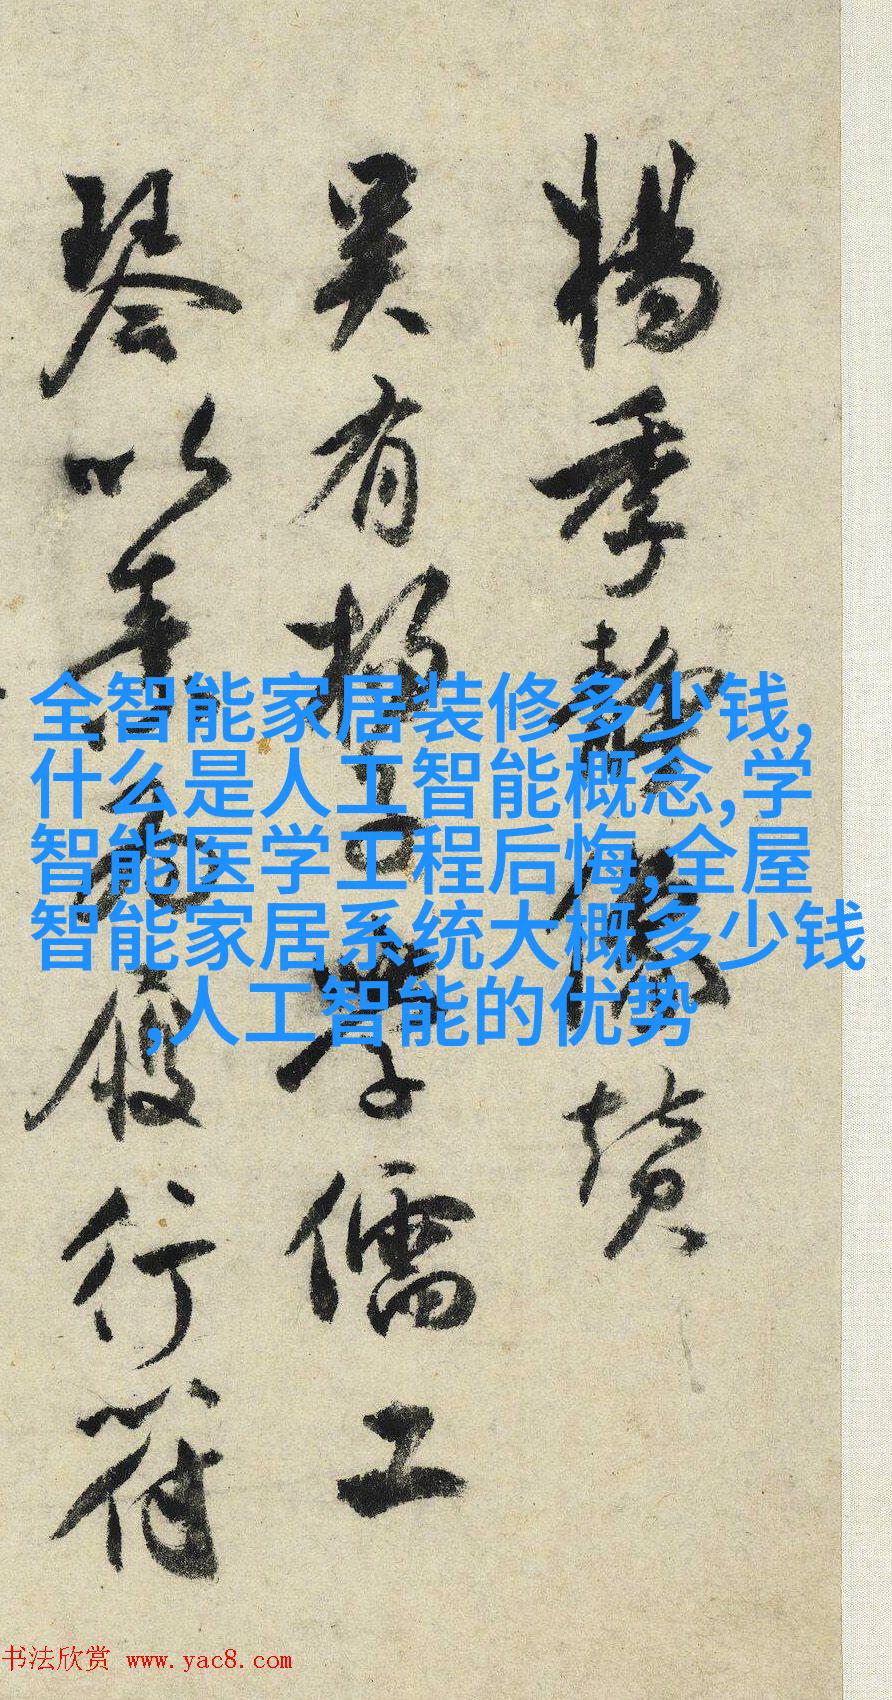 楊季靜像贊
吴有楊子學儒工
琴以為履行符
全智能家居装修多少钱,
什么是人工智能概念,学
智能医学工程后悔,全屋
智能家居系统大概多少钱
,人工智能的优势
书法欣赏 www.yac8.com